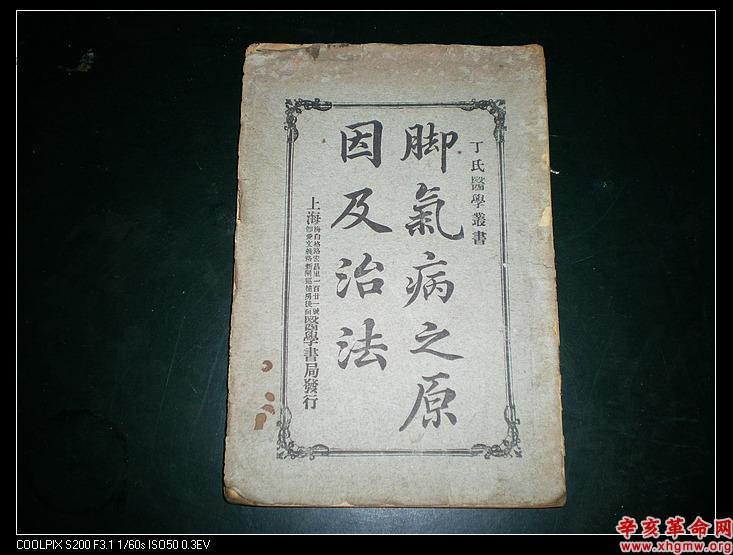 丁氏醫學叢書
脚氣病之原
因及治法
上海梅白格路宏昌里一百廿一號醫學書局發行
COOLPIX S200 F3.1 1/60s ISO50 0.3EV
辛亥革命网
www.xhgmw.org